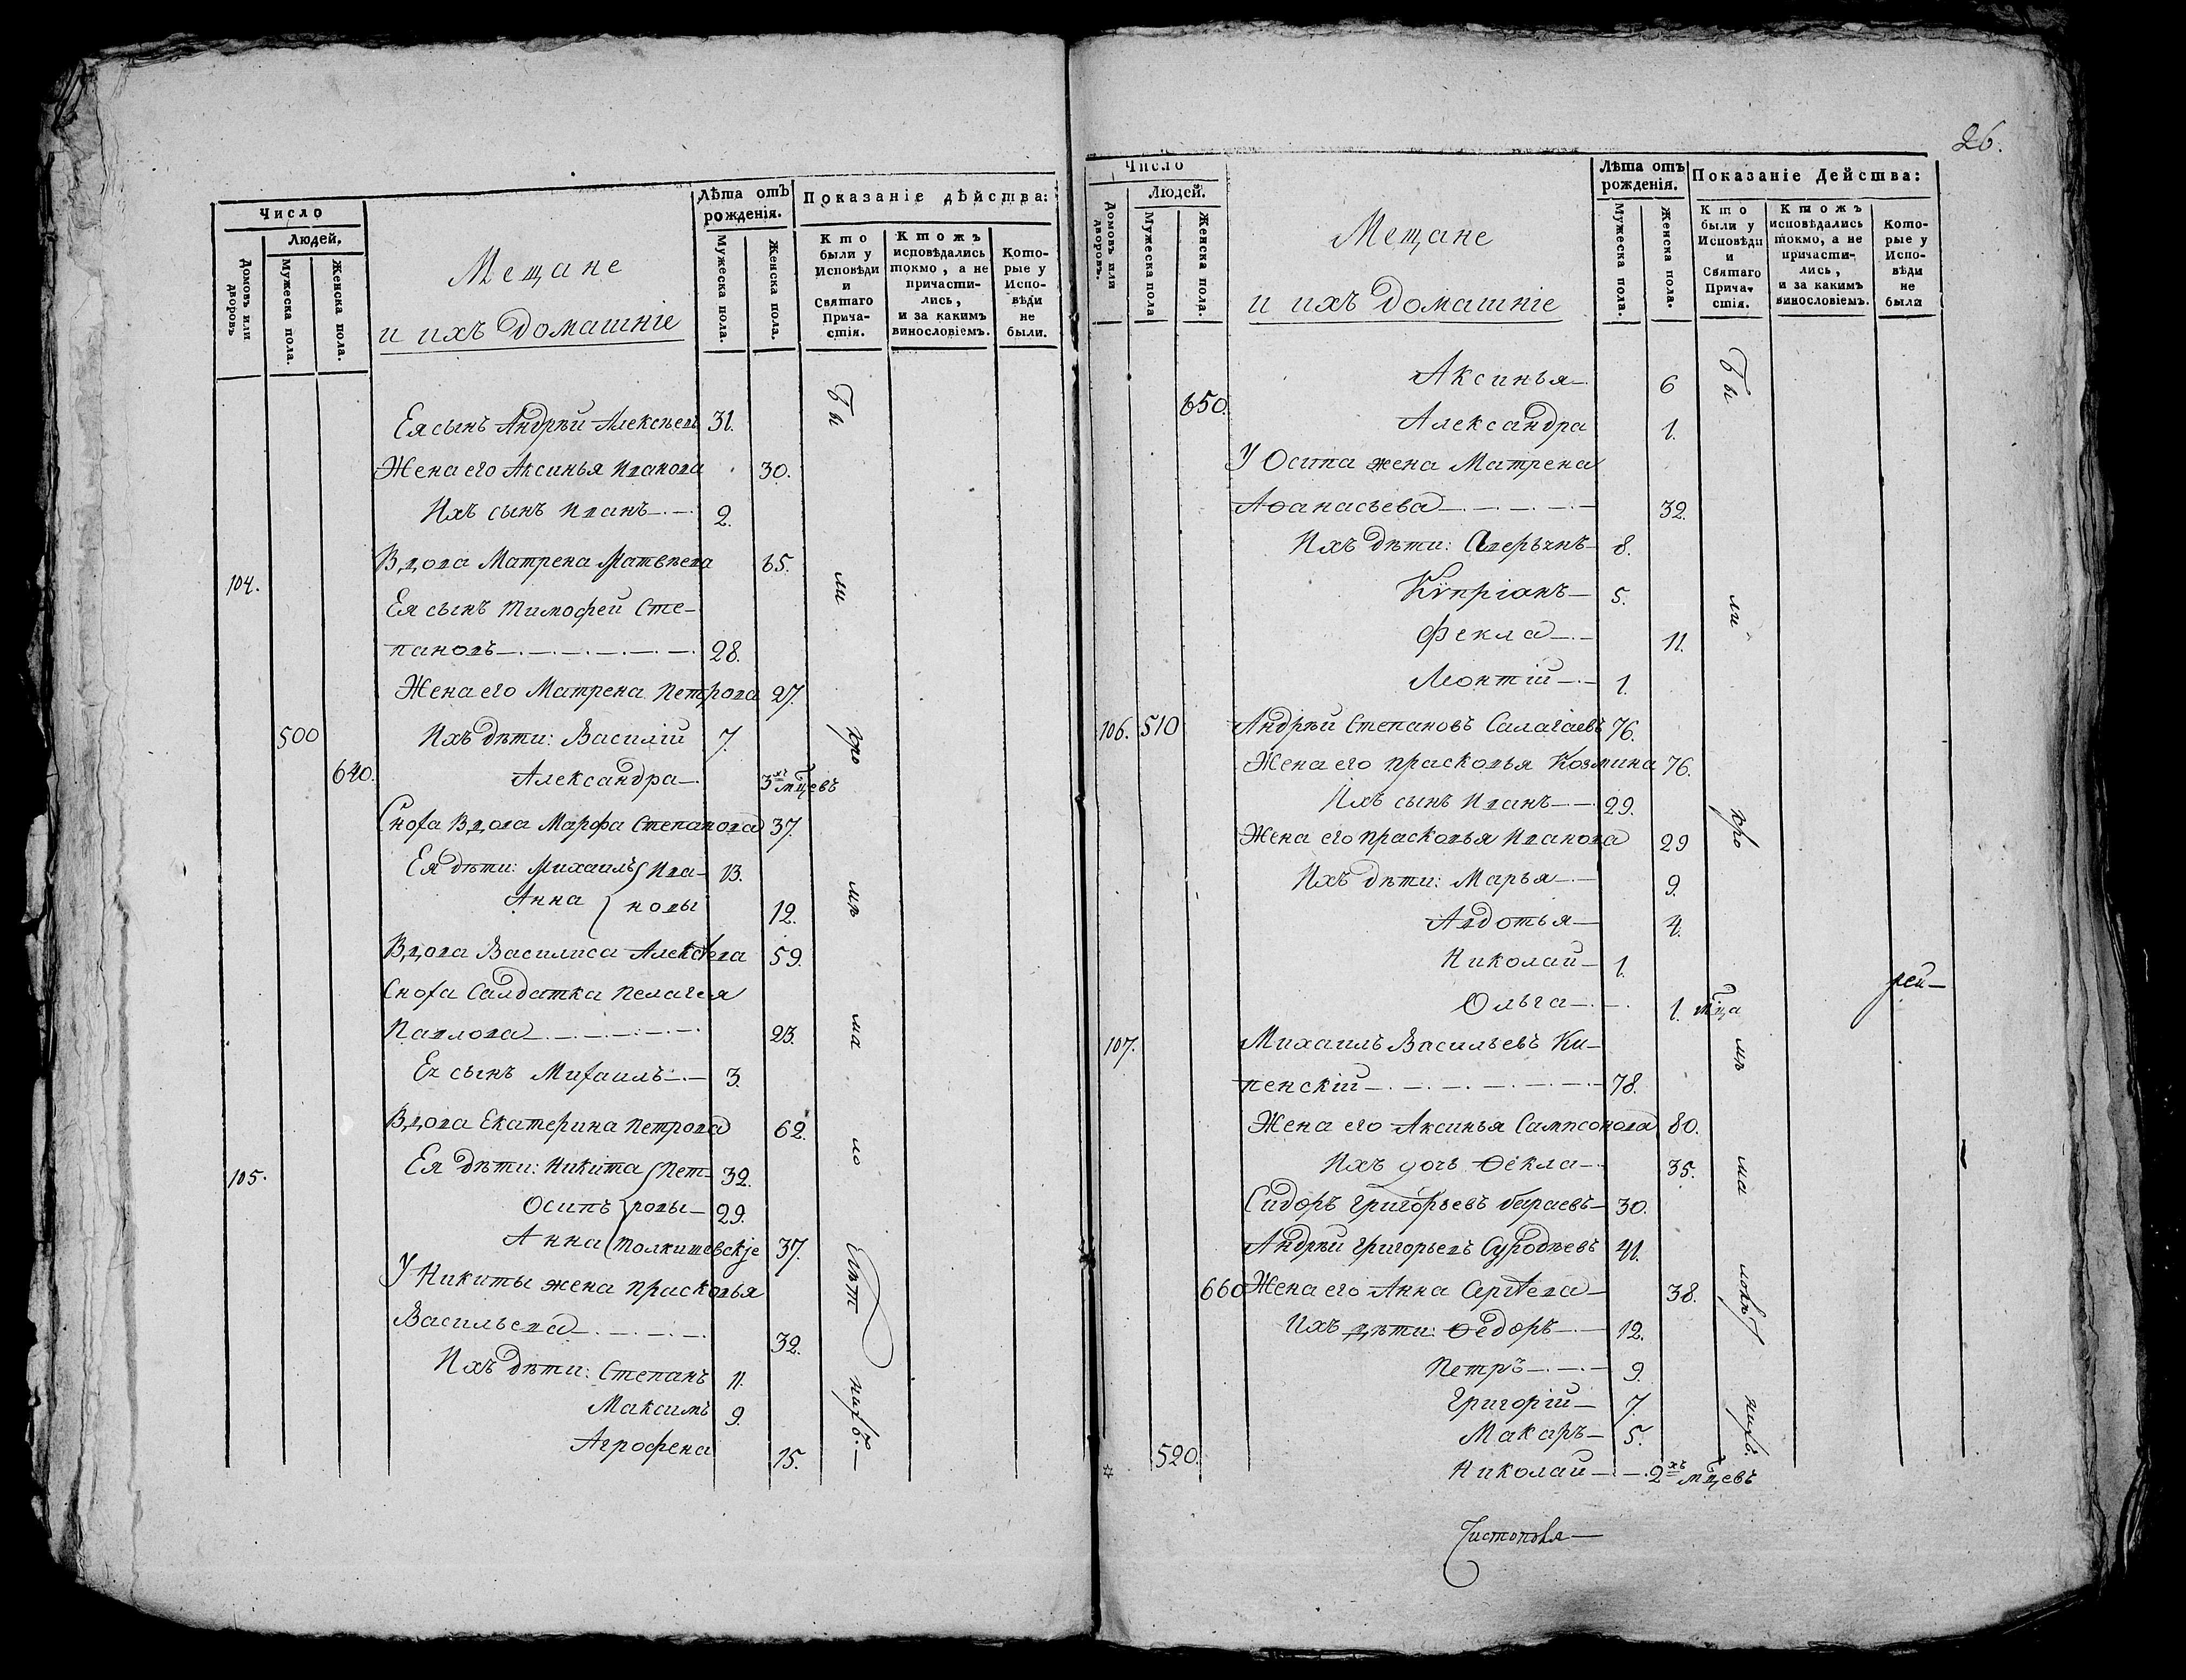 Число
Людей,
Домовъ или дворовъ
Мужеска пола.
Женска пола.
Мещане
и ихъ домашніе
Лѣта отъ рожденія.
Мужеска пола.
Женска пола.
Показаніе дѣйства:
Кто были у Исповѣди и Святаго Прича-стія.
Ктожъ исповѣдались токмо, а не причасти-лись, и за какимъ винословіемъ.
Кото-рые у Испо-вѣди не были.
Ея сынъ Андрѣй Алексѣевъ 31.
Жена его Аксинья Иванова 30.
Ихъ сынъ Иванъ 2.
Вдова Матрена Матвѣева 65.
104.
Ея сынъ Тимофей Сте-
пановъ 28.
Жена его Матрена Петрова 27.
500 Ихъ дѣти: Василій 7.
640. Александра 3хъ мцевъ
Сноха Вдова Марфа Степанова 37.
Ея дѣти: Михаилъ Ива- 13.
Анна новы 12.
Вдова Василиса Алексѣева 59.
Сноха Салдатка Пелагея
Павлова 23.
Ея сынъ Михаилъ 3.
Вдова Екатерина Петрова 62.
105. Ея дѣти: Никита Пет- 32.
Осипъ ровы 29.
Анна 37.
У Никиты жена Прасковья
Васильева 32.
Ихъ дѣти: Степанъ 11.
Максимъ 9.
Агрофена 15.
Бы
ли
26.
Число
Людей.
Домовъ или дворовъ.
Мужеска пола
Женска пола.
Мещане
и ихъ домашніе
Лѣта отъ рожденія.
Мужеска пола.
Женска пола.
Показаніе Действа:
Кто были у Исповѣди и Святаго Прича-стія.
Ктожъ исповѣдались токмо, а не причасти-лись, и за какимъ винословіемъ.
Кото-рые у Испо-вѣди не были
Аксинья 6
650. Александра 1.
У Осипа жена Матрена
Аѳанасьева 32.
Ихъ дѣти: 8.
Кѵпріанъ 5.
Фекла 11.
Леонтій 1.
106. 510 Андрѣй Степановъ Салагаевъ 76.
Жена его Прасковья Козмина 76.
Ихъ сынъ Иванъ 29.
Жена его Прасковья Иванова 29
Ихъ дѣти: Марья 9.
Авдотья 4.
Николай 1.
Ольга 1. мца
107. Михаилъ Васильевъ Ки-
пенскій 78.
Жена его Аксинья Сампсонова 80.
Ихъ дочь Ѳекла 35.
Сидоръ Григорьевъ 30.
Андрѣй Григорьевъ Суродѣевъ 41.
660 Жена его Анна Сергѣева 38.
Ихъ дѣти: Ѳедоръ 12.
Петръ 9.
Григорій 7.
Макаръ 5.
520. Николай 2хъ мцевъ
Бы
ли
рей
Чистополя